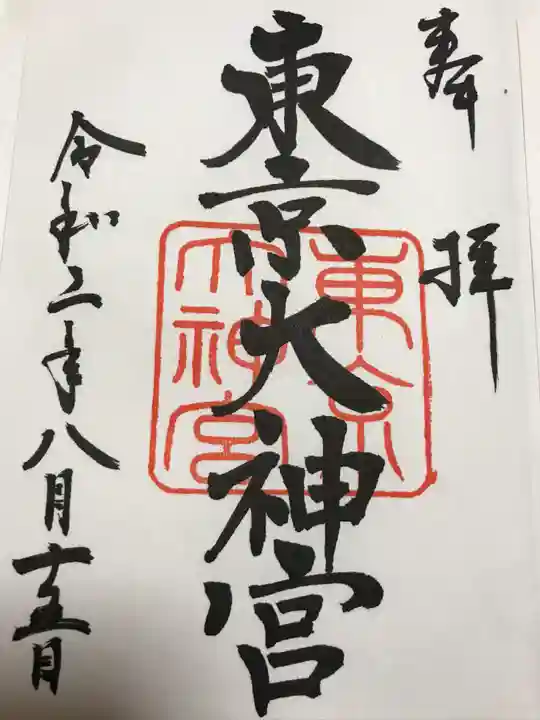 奉拝
東京大神宮
東京
大神宮
令和二年八月十五日